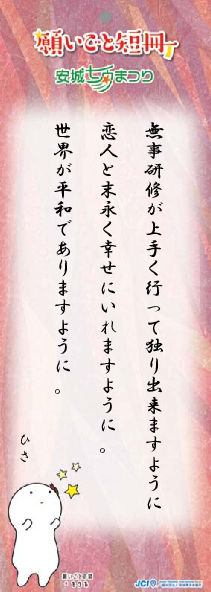 願いごと短冊
安城七夕まつり
無事研修が上手く行って独り出来ますように
恋人と末永く幸せにいれますように。
世界が平和でありますように。
ひさ
願いごと短冊
JCI